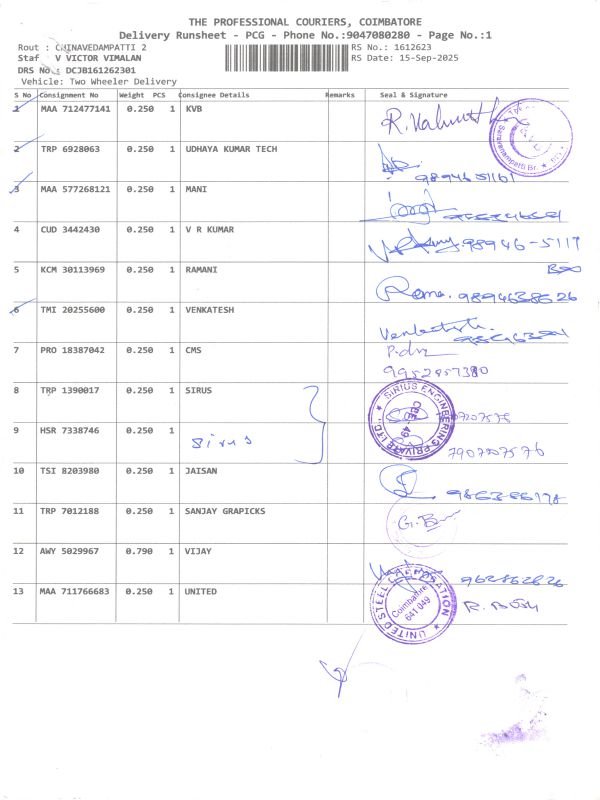 THE PROFESSIONAL COURIERS, COIMBATORE
Delivery Runsheet - PCG - Phone No.:9047080280 - Page No.:1
Rout : CHINAVEDAMPATTI 2 RS No.: 1612623
Staf V VICTOR VIMALAN RS Date: 15-Sep-2025
DRS No.: DCJB161262301
Vehicle: Two Wheeler Delivery
S No Consignment No Weight PCS Consignee Details Remarks Seal & Signature
1 MAA 712477141 0.250 1 KVB
Saravanampatti Br.
2 TRP 6928063 0.250 1 UDHAYA KUMAR TECH
3 MAA 577268121 0.250 1 MANI
4 CUD 3442430 0.250 1 V R KUMAR 98946-5117
5 KCM 30113969 0.250 1 RAMANI
Rama. 9894638526
6 TMI 20255600 0.250 1 VENKATESH
7 PRO 18387042 0.250 1 CMS
9952957380
8 TRP 1390017 0.250 1 SIRUS
SIRIUS ENGINEERING PRIVATE LTD.
9 HSR 7338746 0.250 1 Sirus
7907207576
10 TSI 8203980 0.250 1 JAISAN
11 TRP 7012188 0.250 1 SANJAY GRAPICKS
12 AWY 5029967 0.790 1 VIJAY
13 MAA 711766683 0.250 1 UNITED
UNITED STEEL CORPORATION
Coimbatore
641 049